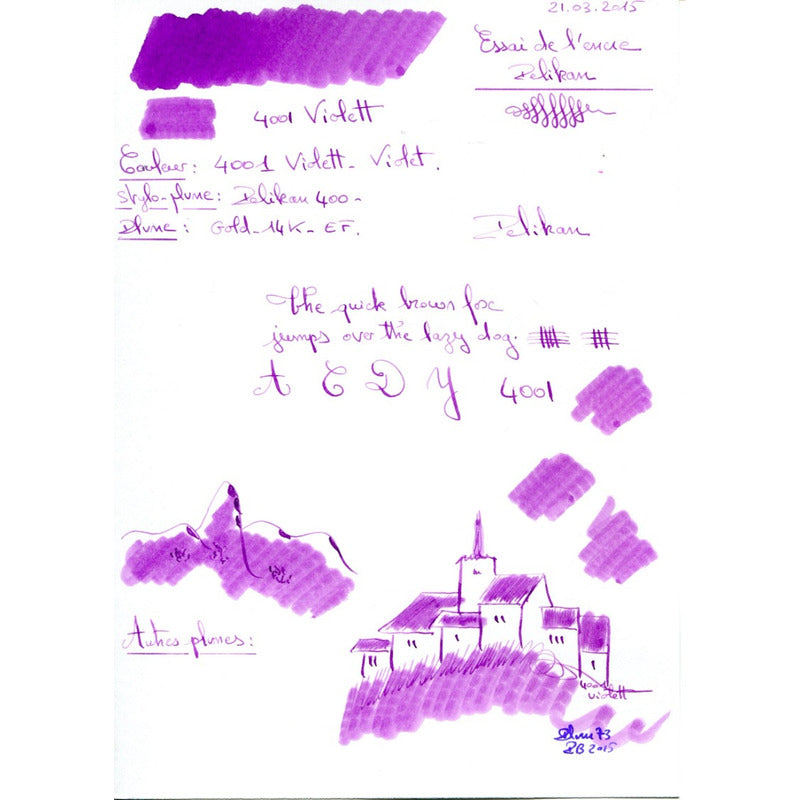 21.03.2015
Essai de l'encre
Pelikan
4001 Violett
Couleur: 4001 Violett - Violet.
Stylo-plume: Pelikan 400 -
Plume: Gold - 14K - EF.
Pelikan
The quick brown fox
jumps over the lazy dog.
A C D Y 4001
Autres plumes:
4001
Violett
Plume 73
PB 2015